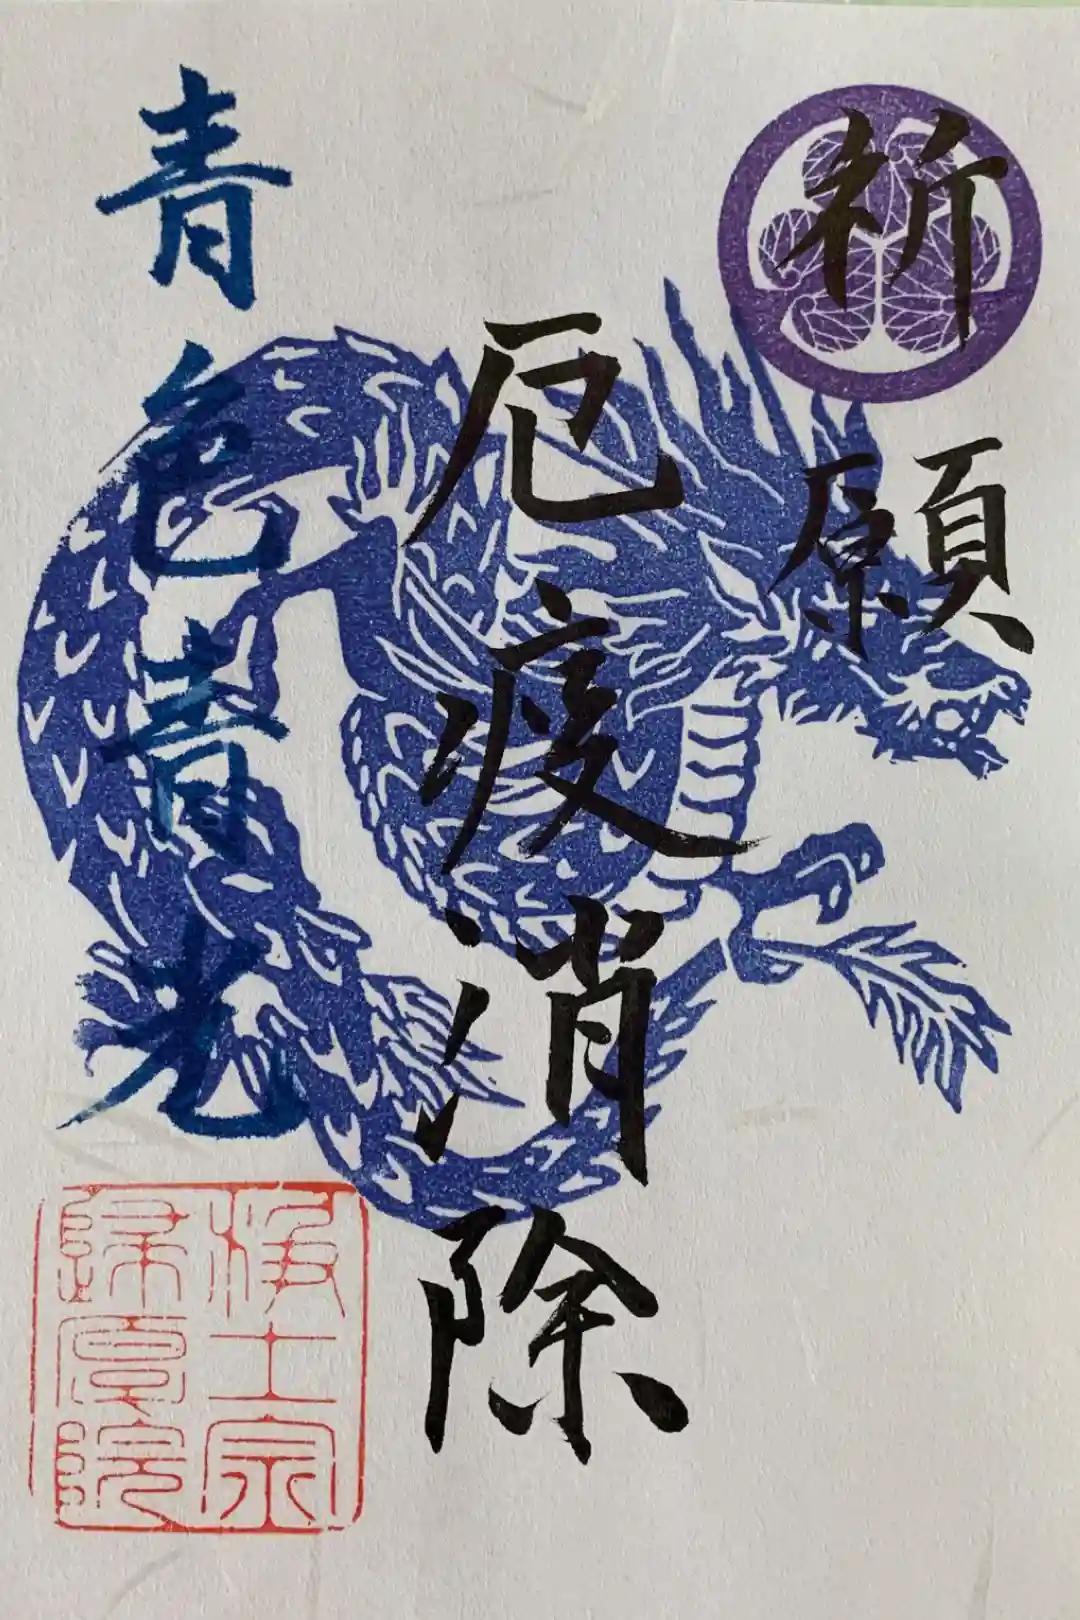 祈願
厄疫消除
青色青光
浄土宗
帰原院